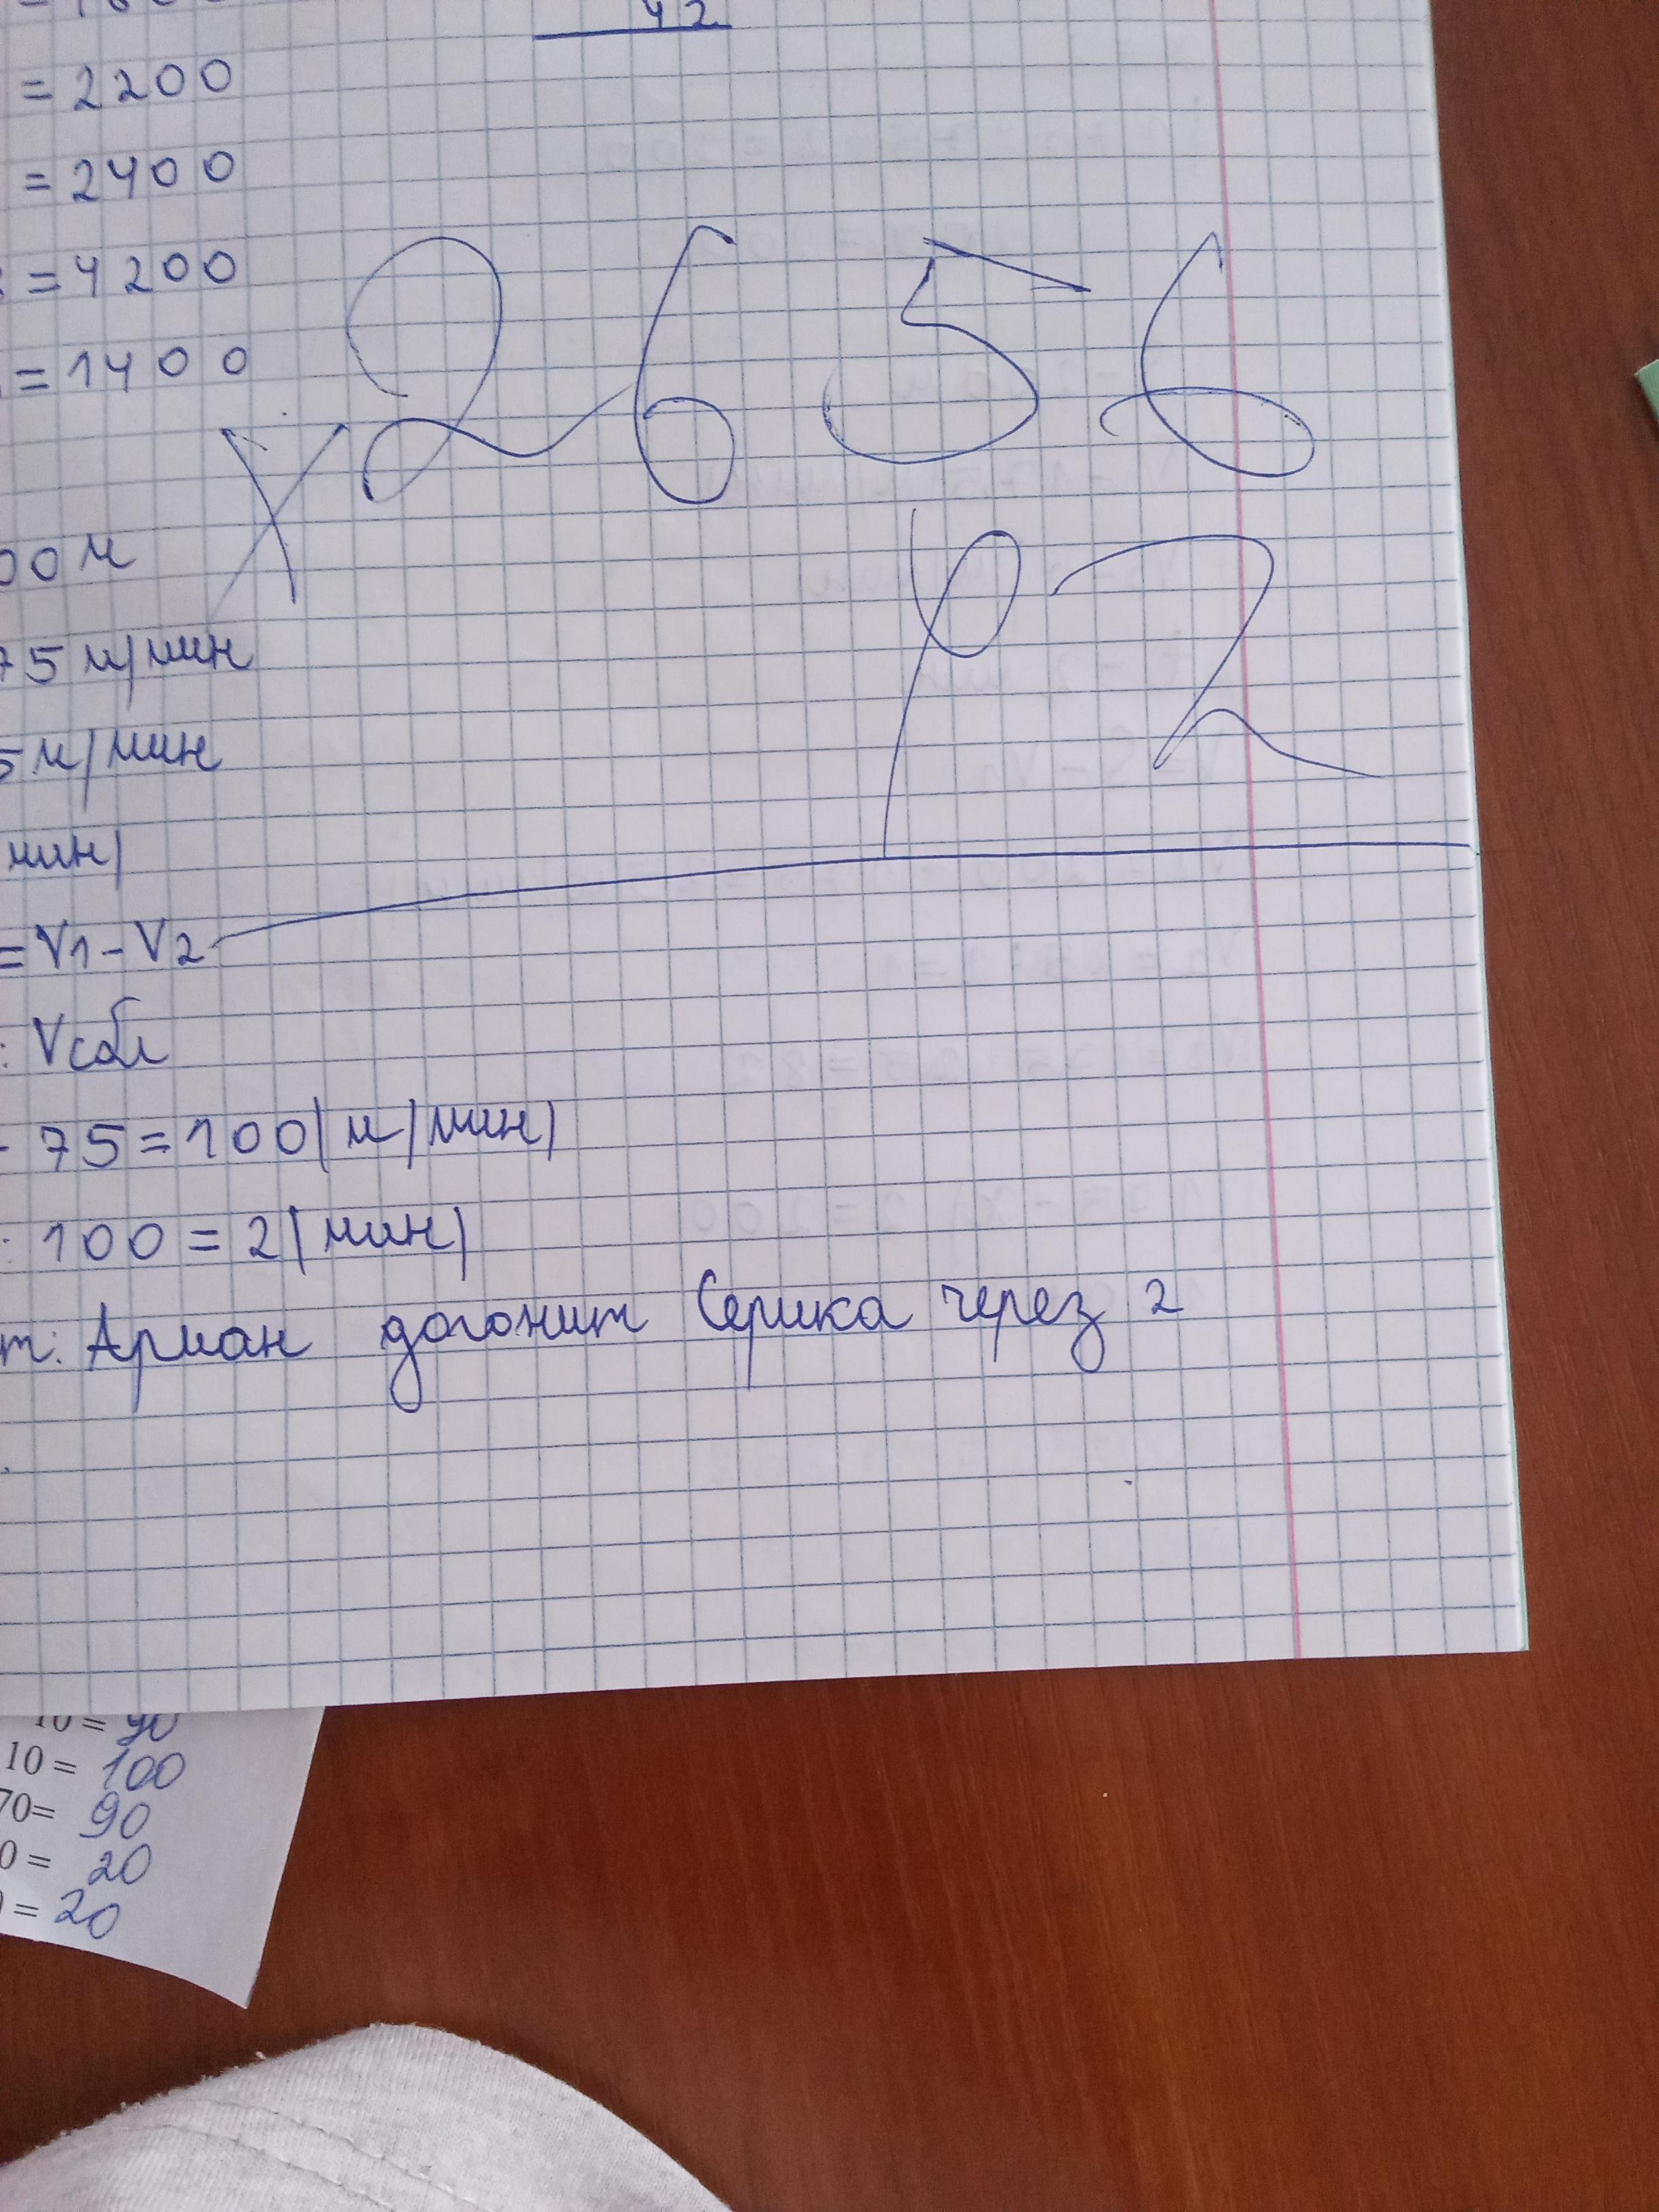 42
= 2200
= 2400
= 4200
= 1400
× 2656
82
00 м
75 м/мин
5 м/мин
мин)
= V1 - V2
: Vсбл
- 75 = 100 (м/мин)
: 100 = 2 (мин)
т: Арман догонит Серика через 2
10 = 90
10 = 100
70= 90
0 = 20
0 = 20